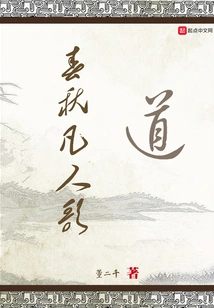 起点中文网
道
春秋凡人歌
董二千
著